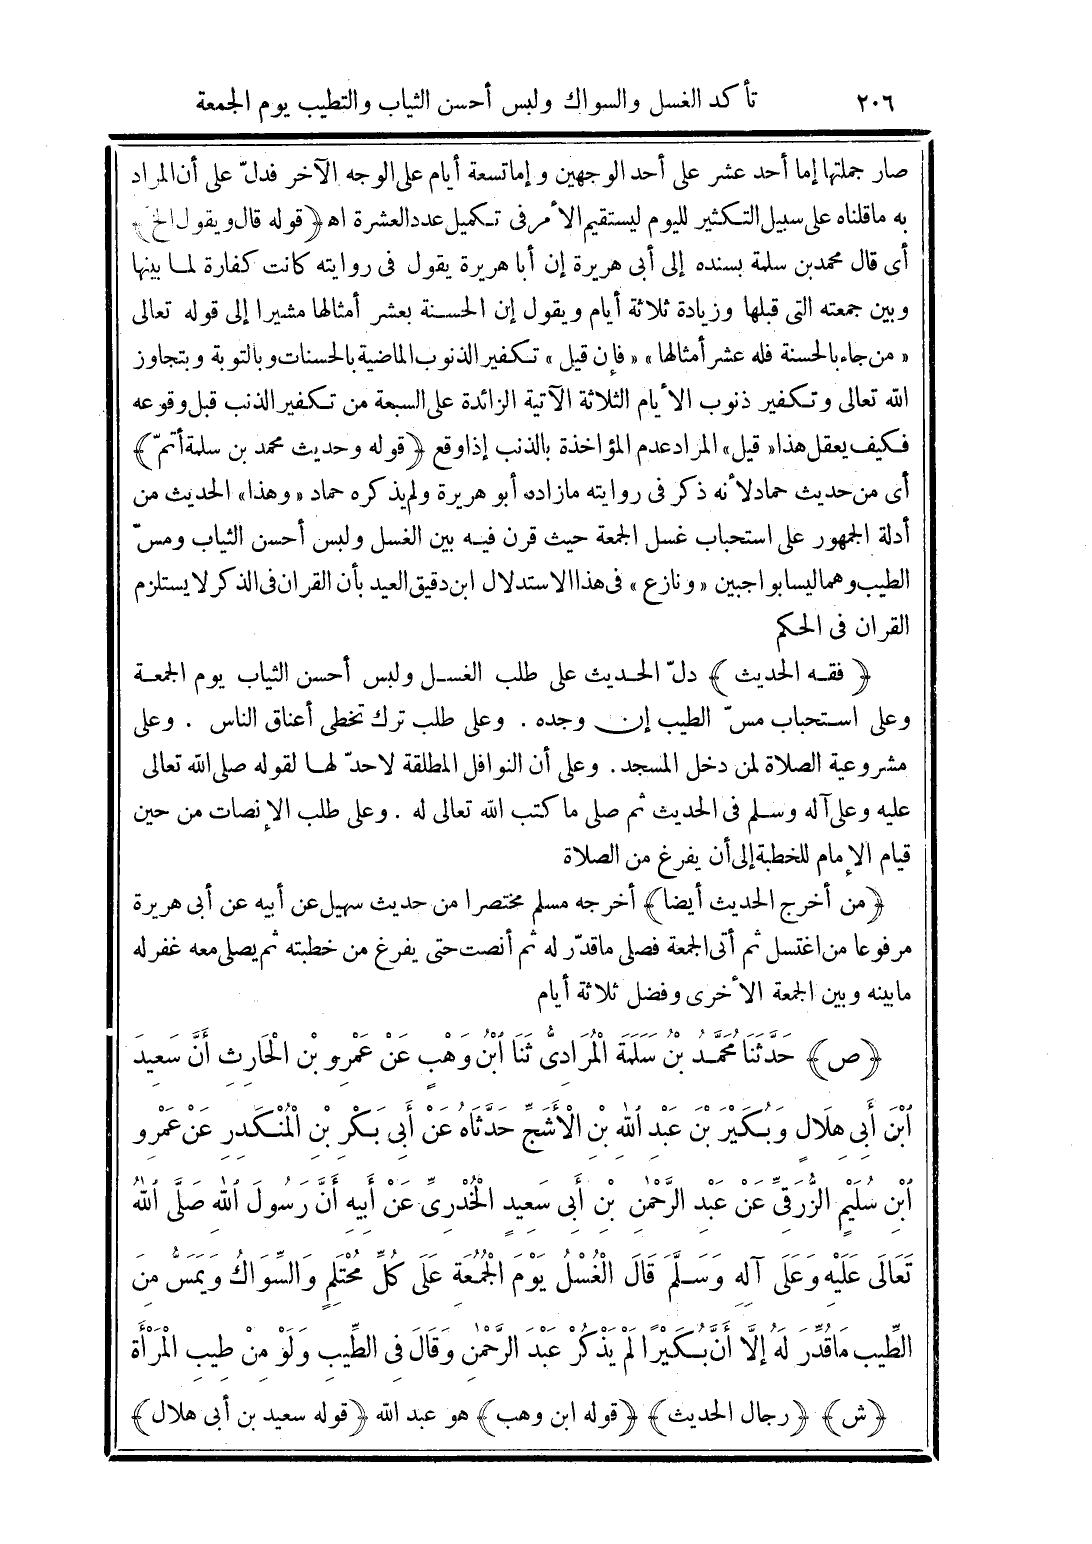 ٢٠٦ تأكد الغسل والسواك ولبس أحسن الثياب والتطيب يوم الجمعة
صار جملتها إما أحد عشر على أحد الوجهين وإما تسعة أيام على الوجه الآخر فدلّ على أن المراد
به ماقلناه على سبيل التكثير لليوم ليستقيم الأمر فى تكميل عدد العشرة اه ﴿قوله قال ويقول الخ﴾
أى قال محمد بن سلمة بسنده إلى أبى هريرة إن أبا هريرة يقول فى روايته كانت كفارة لما بينها
وبين جمعته التى قبلها وزيادة ثلاثة أيام ويقول إن الحسنة بعشر أمثالها مشيرا إلى قوله تعالى
« من جاء بالحسنة فله عشر أمثالها » « فإن قيل » تكفير الذنوب الماضية بالحسنات وبالتوبة وبتجاوز
الله تعالى وتكفير ذنوب الأيام الثلاثة الآتية الزائدة على السبعة من تكفير الذنب قبل وقوعه
فكيف يعقل هذا « قيل » المراد عدم المؤاخذة بالذنب إذا وقع ﴿قوله وحديث محمد بن سلمة أتمّ﴾
أى من حديث حماد لأنه ذكر فى روايته مازاده أبو هريرة ولم يذكره حماد « وهذا » الحديث من
أدلة الجمهور على استحباب غسل الجمعة حيث قرن فيه بين الغسل ولبس أحسن الثياب ومسّ
الطيب وهما ليسا بواجبين « ونازع » فى هذا الاستدلال ابن دقيق العيد بأن القران فى الذكر لا يستلزم
القران فى الحكم
﴿ فقه الحديث ﴾ دلّ الحديث على طلب الغسل ولبس أحسن الثياب يوم الجمعة
وعلى استحباب مسّ الطيب إن وجده . وعلى طلب ترك تخطى أعناق الناس . وعلى
مشروعية الصلاة لمن دخل المسجد . وعلى أن النوافل المطلقة لاحدّ لها لقوله صلى الله تعالى
عليه وعلى آله وسلم فى الحديث ثم صلى ما كتب الله تعالى له . وعلى طلب الإنصات من حين
قيام الإمام للخطبة إلى أن يفرغ من الصلاة
﴿من أخرج الحديث أيضا﴾ أخرجه مسلم مختصرا من حديث سهيل عن أبيه عن أبى هريرة
مرفوعا من اغتسل ثم أتى الجمعة فصلى ماقدّر له ثم أنصت حتى يفرغ من خطبته ثم يصلى معه غفر له
مابينه وبين الجمعة الأخرى وفضل ثلاثة أيام
﴿ص﴾ حَدَّثَنَا مُحَمَّدُ بْنُ سَلَمَةَ الْمُرَادِىُّ ثَنَا ابْنُ وَهْبٍ عَنْ عَمْرِو بْنِ الْحَارِثِ أَنَّ سَعِيدَ
ابْنَ أَبِى هِلَالٍ وَبُكَيْرَ بْنَ عَبْدِ اللهِ بْنِ الْأَشَجِّ حَدَّثَاهُ عَنْ أَبِى بَكْرِ بْنِ الْمُنْكَدِرِ عَنْ عَمْرِو
ابْنِ سُلَيْمٍ الزُّرَقِىِّ عَنْ عَبْدِ الرَّحْمٰنِ بْنِ أَبِى سَعِيدٍ الْخُدْرِىِّ عَنْ أَبِيهِ أَنَّ رَسُولَ اللهِ صَلَّى اللهُ
تَعَالَى عَلَيْهِ وَعَلَى آلِهِ وَسَلَّمَ قَالَ الْغُسْلُ يَوْمَ الْجُمُعَةِ عَلَى كُلِّ مُحْتَلِمٍ وَالسِّوَاكُ وَيَمَسُّ مِنَ
الطِّيبِ مَا قُدِّرَ لَهُ إِلَّا أَنَّ بُكَيْرًا لَمْ يَذْكُرْ عَبْدَ الرَّحْمٰنِ وَقَالَ فِى الطِّيبِ وَلَوْ مِنْ طِيبِ الْمَرْأَةِ
﴿ش﴾ ﴿رجال الحديث﴾ ﴿قوله ابن وهب﴾ هو عبد الله ﴿قوله سعيد بن أبى هلال﴾